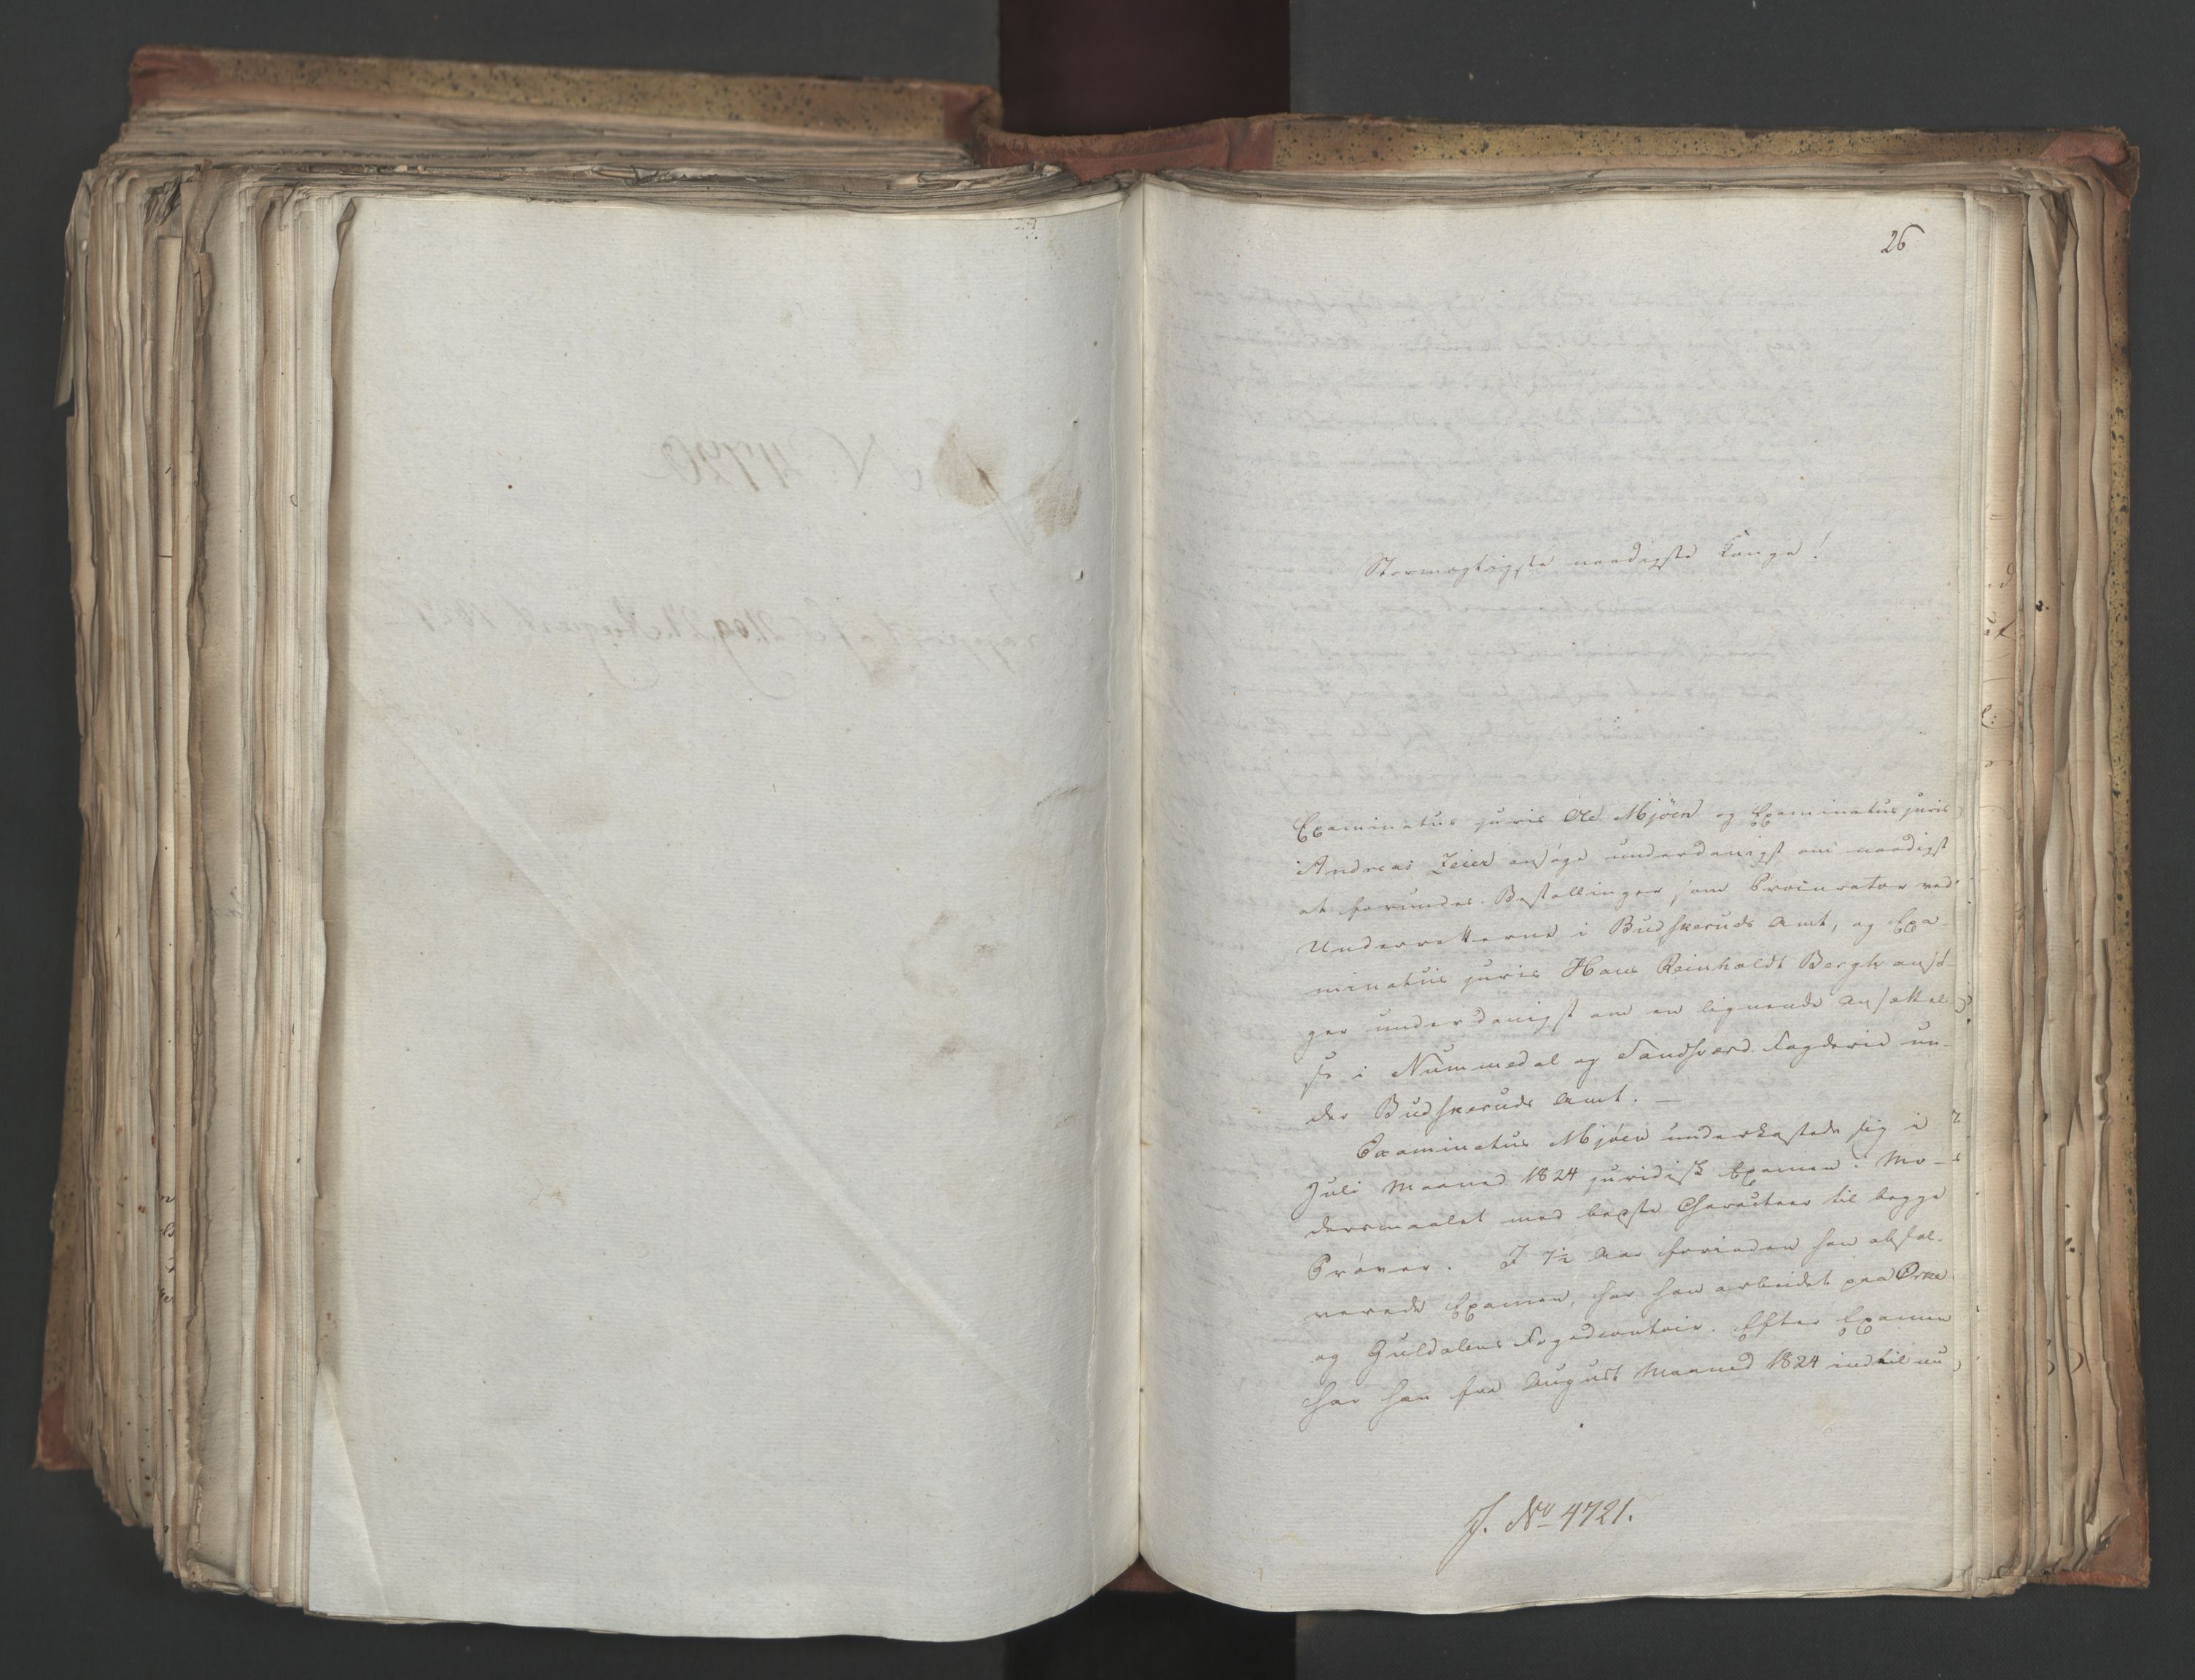 26
Stormægtigste naadigste Konge!
Examinatus juris Ole Mjöen og Examinatus juris
Andreas Zeier ansøge underdanigst om naadigst
at forundes Bestallinger som Procurator ved
Underretterne i Budskeruds Amt, og Exa-
minatus juris Hans Reinholdt Bergh ansø-
ger underdanigst om en lignende Ansættel-
se i Nummedal og Sandsværd Fogderie un-
der Budskeruds Amt. —
Examinatus Mjöen underkastede sig i
Juli Maaned 1824 juridisk Examen i Mo-
dersmaalet med bedste Characteer til begge
Prøver. I 7½ Aar forinden han absol-
verede Examen, har han arbeidet paa Orke
og Guldalens Fogedcontoir. Efter Examen
har han fra August Maaned 1824 indtil nu
J. No 4721.